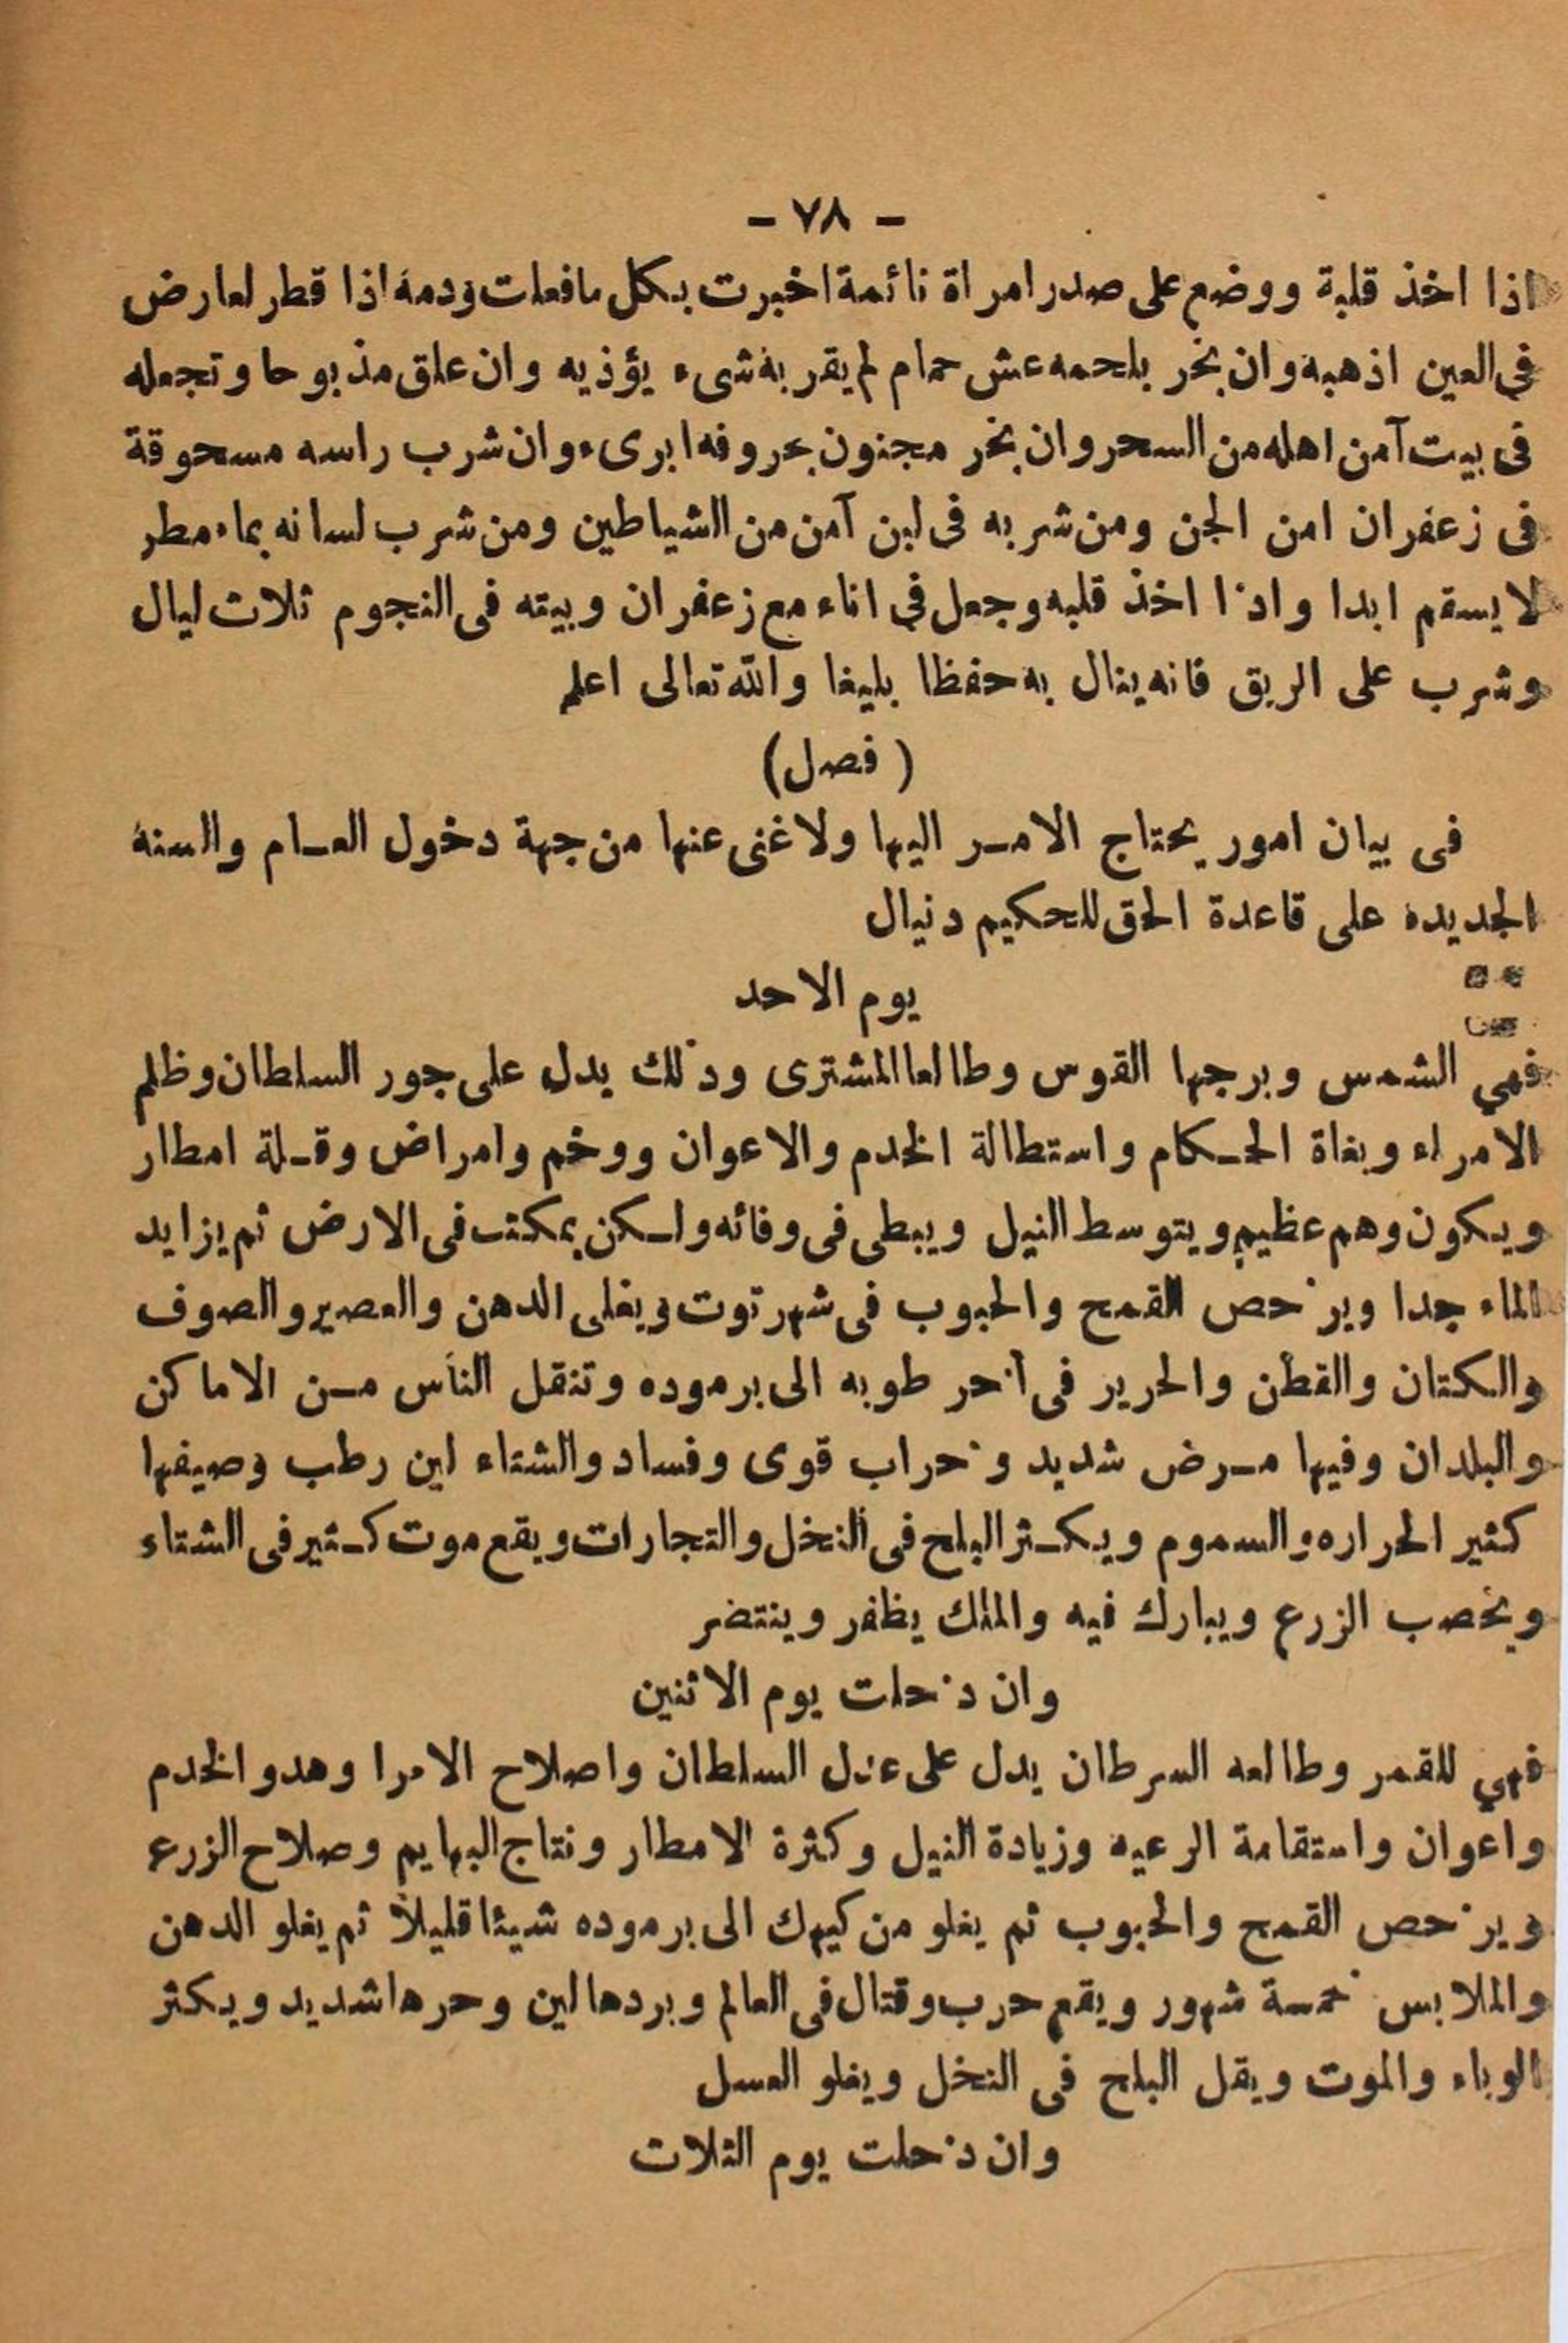 - ٧٨ -
اذا اخذ قلبة ووضع على صدر امراة نائمة اخبرت بكل ما فعلت ودمه اذا قطر لعارض
فى العين اذهبه وان بخر بلحمه عش حمام لم يقربه شىء يؤذيه وان علق مذبوحا وتجعله
فى بيت آمن اهله من السحر وان بخر مجنون بحروفه ابرىء وان شرب راسه مسحوقة
فى زعفران امن الجن ومن شربه فى لبن آمن من الشياطين ومن شرب لسانه بماء مطر
لا يسقم ابدا واذا اخذ قلبه وجعل فى اناء مع زعفران وبيته فى النجوم ثلاث ليال
وشرب على الريق فانه ينال به حفظا بليغا والله تعالى اعلم
( فصل )
فى بيان امور يحتاج الامر اليها ولا غنى عنها من جهة دخول العام والسنه
الجديده على قاعدة الحق للحكيم دنيال
يوم الاحد
فهي الشمس وبرجها القوس وطالعا المشترى وذلك يدل على جور السلطان وظلم
الامراء وبغاة الحكام واستطالة الخدم والاعوان ووخم وامراض وقلة امطار
ويكون وهم عظيم ويتوسط النيل ويبطى فى وفائه ولكن يمكث فى الارض ثم يزايد
الماء جدا ويرخص القمح والحبوب فى شهر توت ويغلى الدهن والعصير والصوف
والكتان والقطن والحرير فى اخر طوبه الى برموده وتنقل الناس من الاماكن
والبلدان وفيها مرض شديد وخراب قوى وفساد والشتاء لين رطب وصيفها
كثير الحراره والسموم ويكثر البلح فى النخل والتجارات ويقع موت كثير فى الشتاء
ويخصب الزرع ويبارك فيه والملك يظفر وينتضر
وان دخلت يوم الاثنين
فهي للقمر وطالعه السرطان يدل على عدل السلطان واصلاح الامرا وهدو الخدم
واعوان واستقامة الرعيه وزيادة النيل وكثرة الامطار ونتاج البهايم وصلاح الزرع
ويرخص القمح والحبوب ثم يغلو من كيهك الى برموده شيئا قليلا ثم يغلو الدهن
والملابس خمسة شهور ويقع حرب وقتال فى العالم وبردها لين وحرها شديد ويكثر
الوباء والموت ويقل البلح فى النخل ويغلو العسل
وان دخلت يوم الثلاث